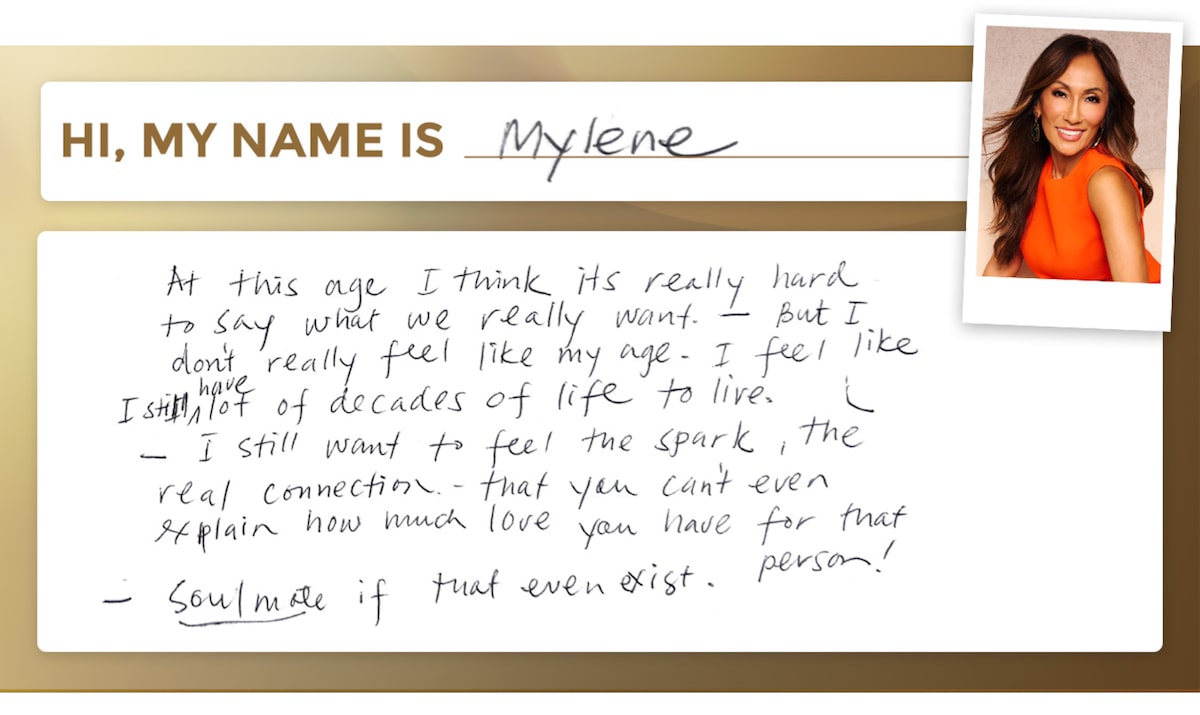 HI, MY NAME IS Mylene
At this age I think its really hard
to say what we really want. — But I
don't really feel like my age - I feel like
I still have lot of decades of life to live.
— I still want to feel the spark, the
real connection. - that you can't even
explain how much love you have for that
person!
— Soulmate if that even exist.